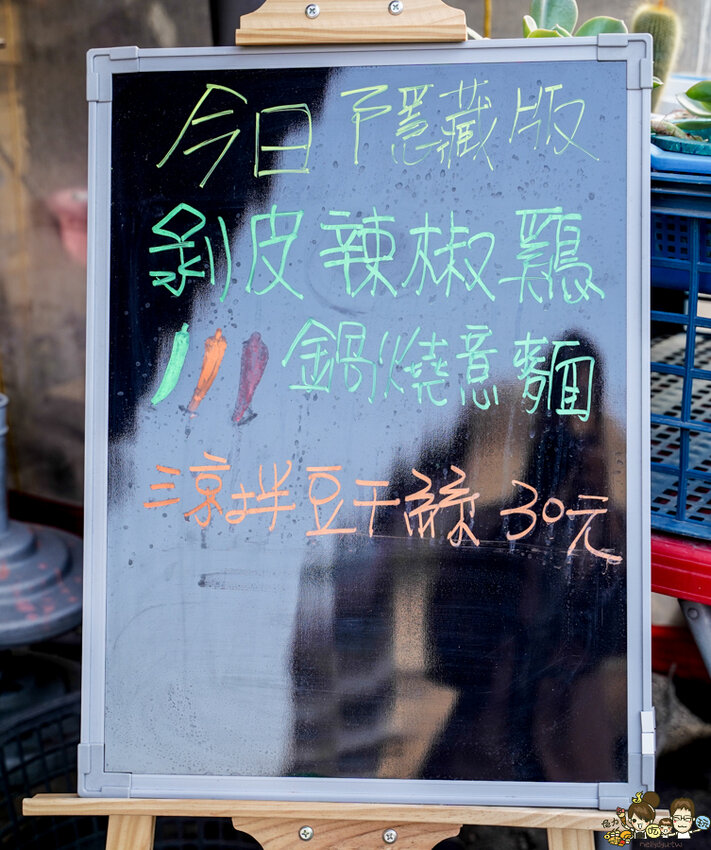 今日隱藏版
剝皮辣椒鷄
鍋燒意麵
涼拌豆干絲 30元
nellydyu.tw